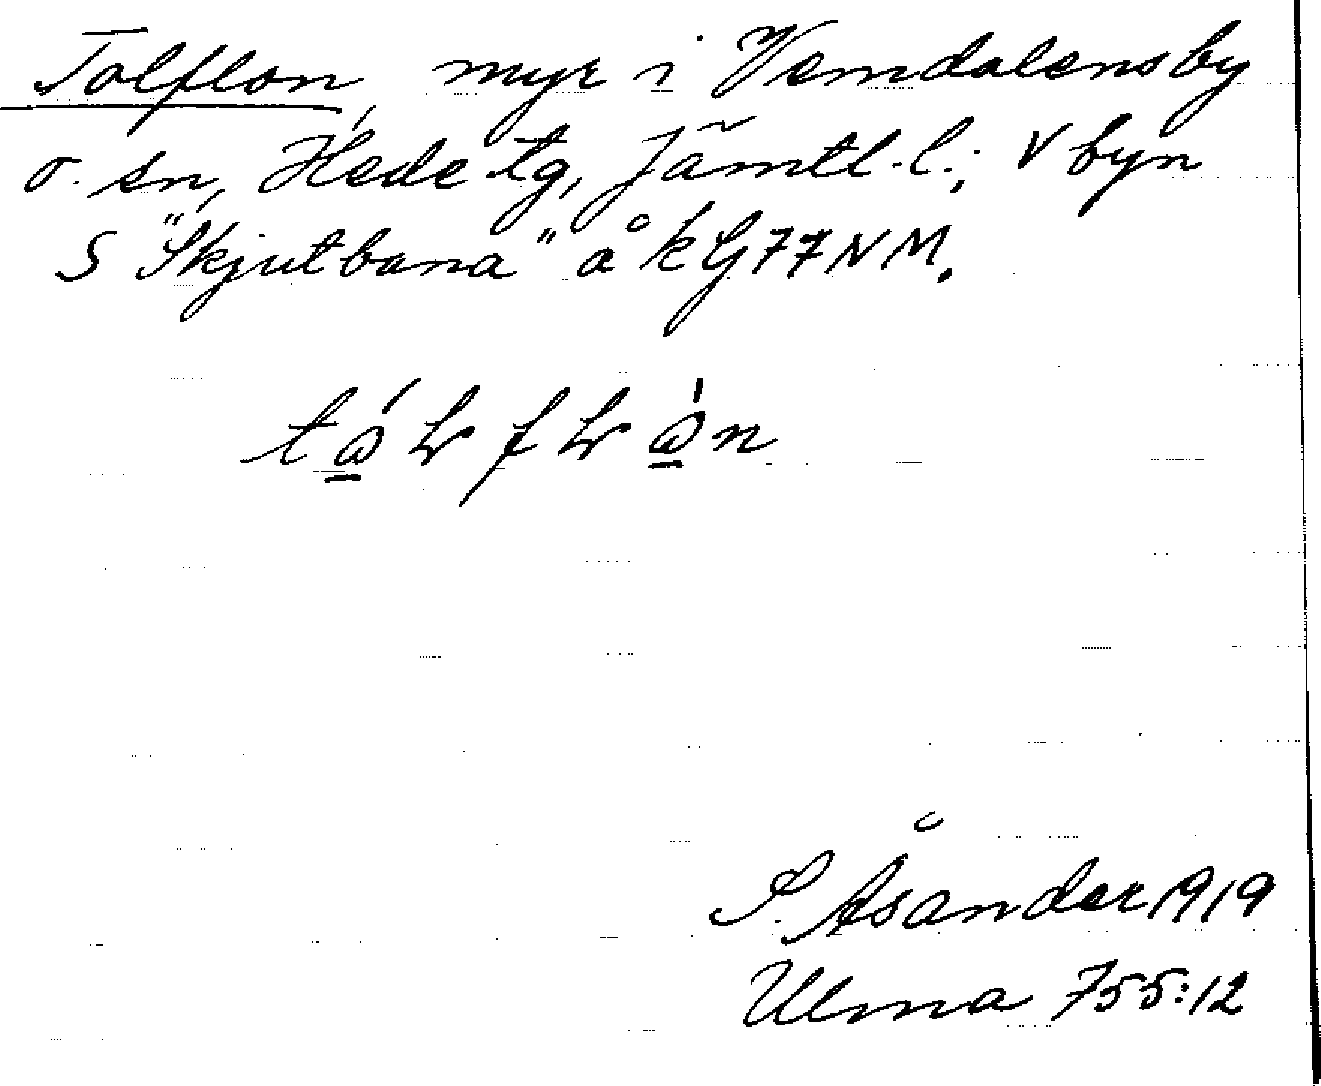 Tolflon, myr i Vemdalens by
o. sn, Hede tg, Jämtl. l.; V byn
S "Skjutbana" å kG77NM.
S. Åsander 1919
Ulma 755:12